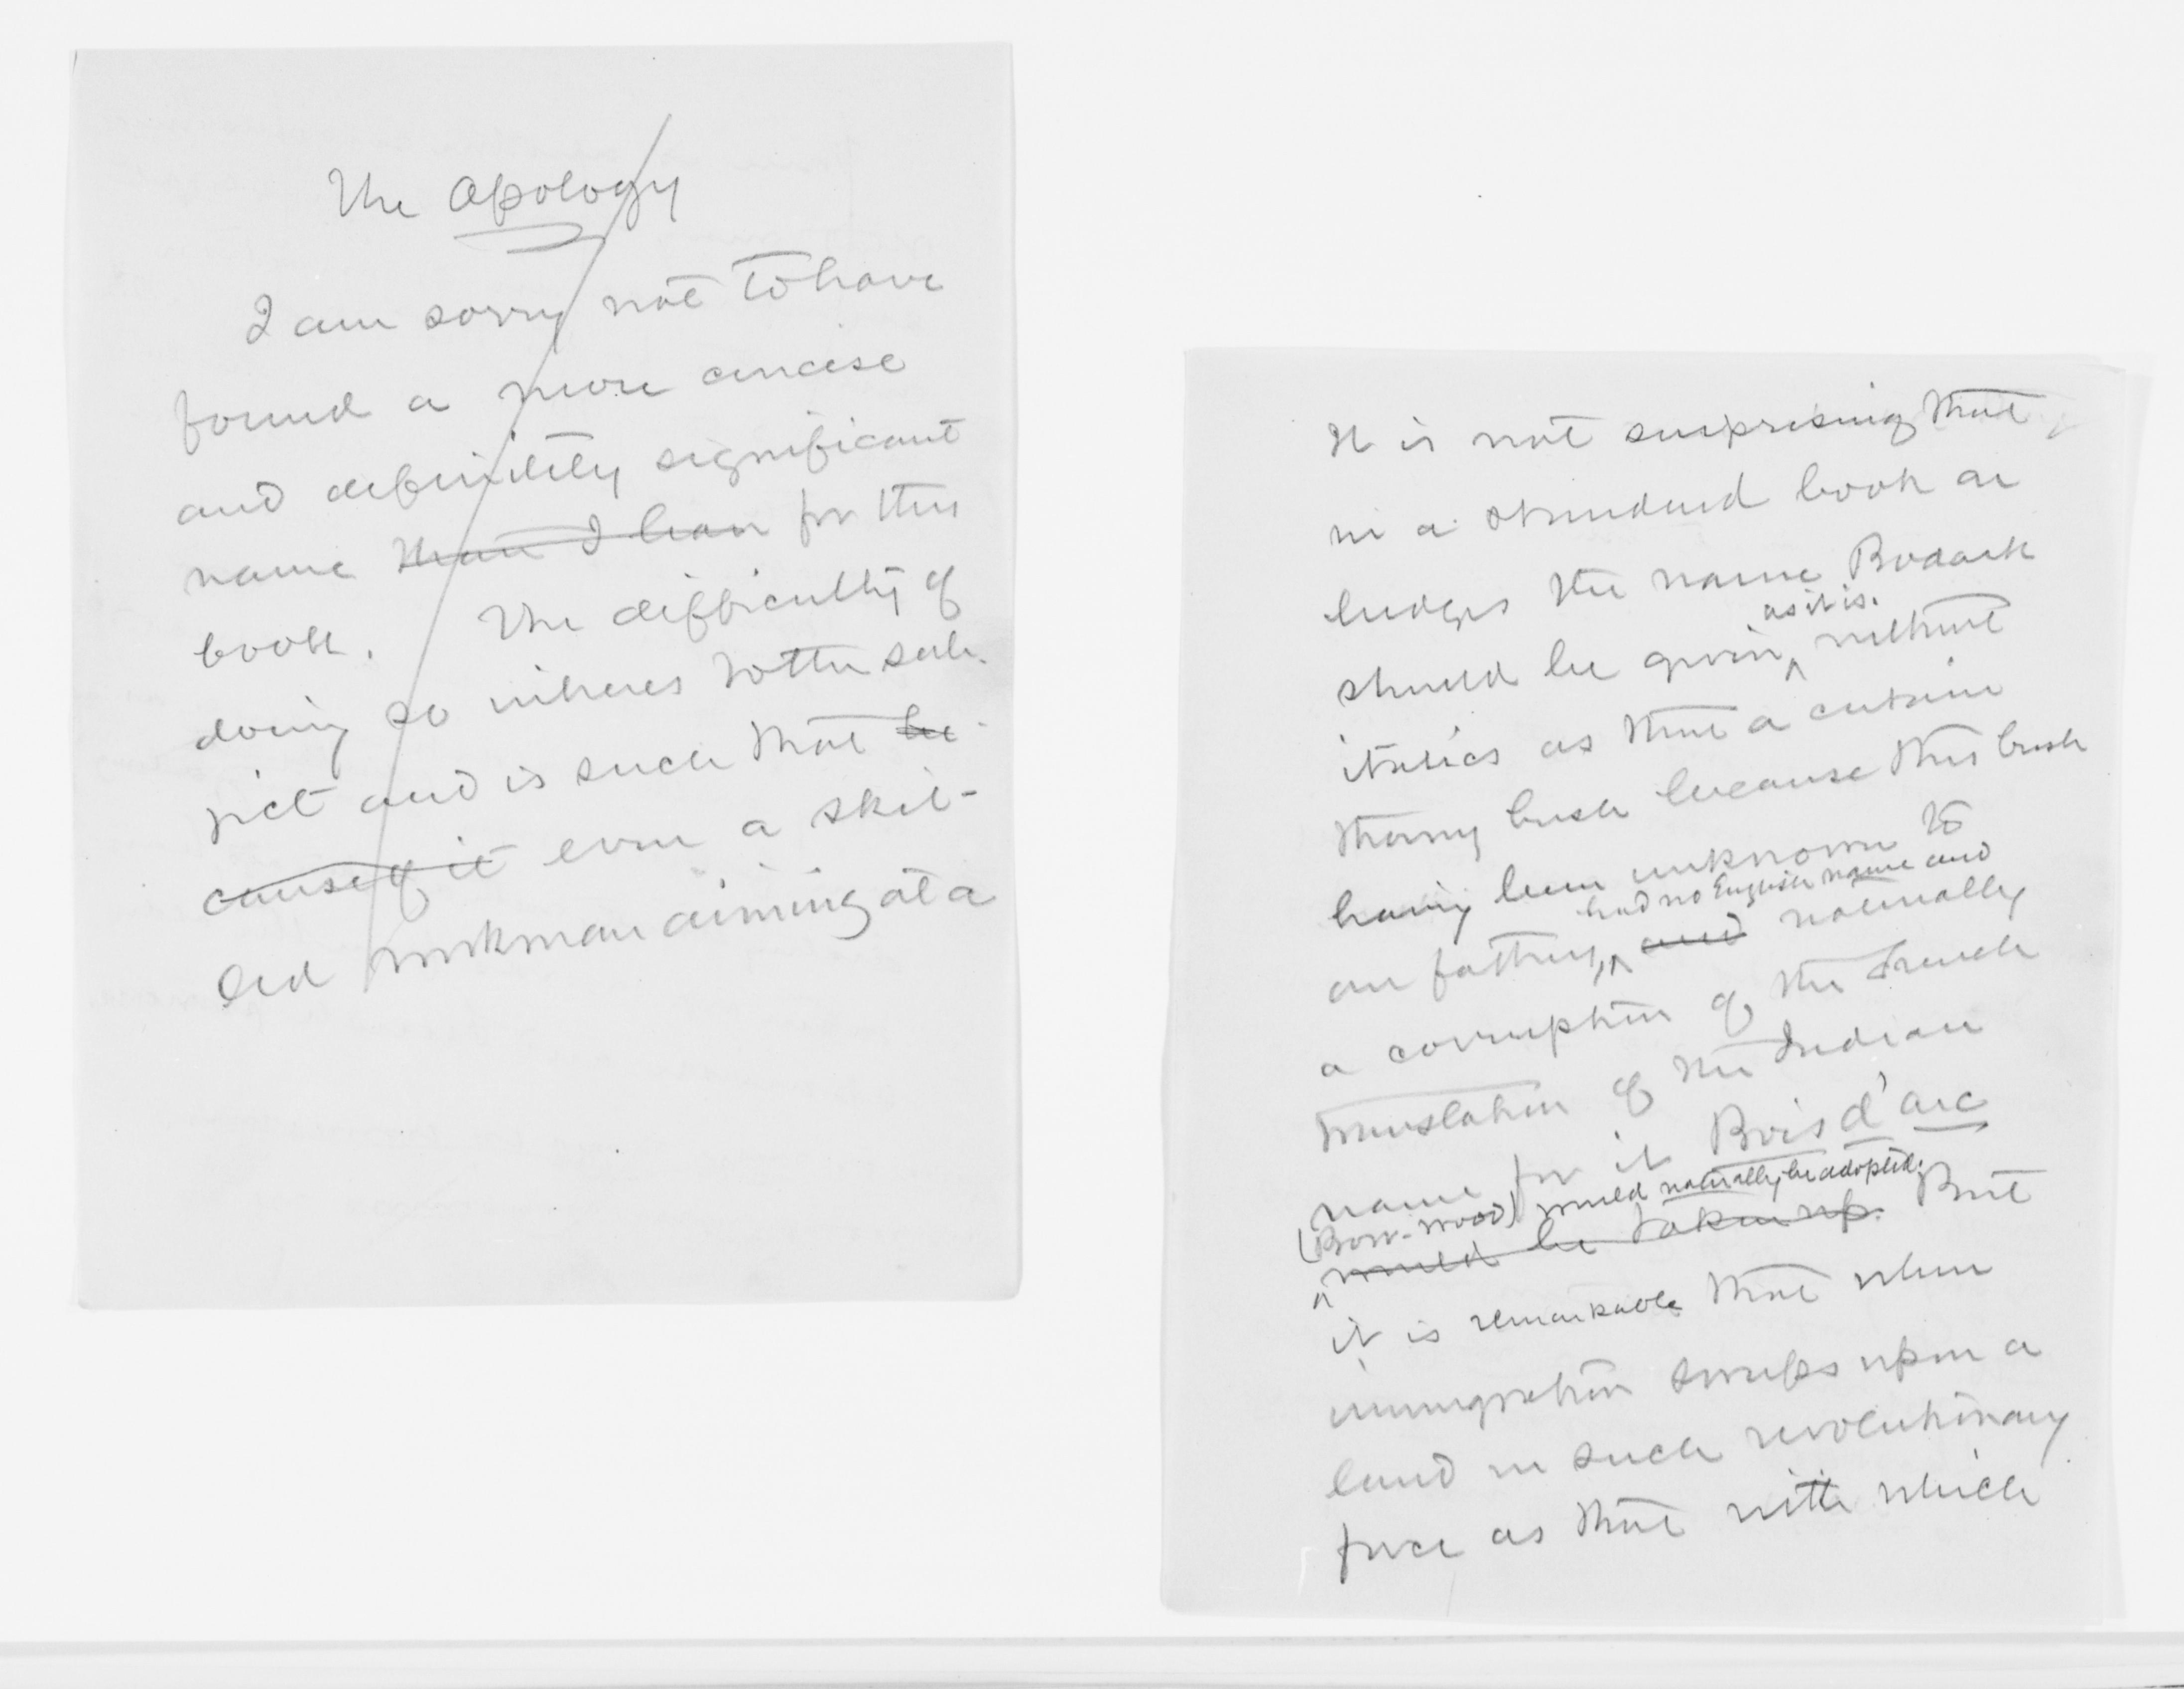 The Apology
I am sorry not to have
found a more concise
and definitely significant
name than I have for this
book. The difficulty of
doing so inheres to the sub-
ject and is such that be-
cause of it even a skil-
led workman aiming at a
It is not surprising that
in a standard book on
hedges the name Bodark
should be given, as it is.
without
italics as that a certain
thorny bush because this bush
having been unknown to
had no English name and
our fathers, and naturally
a corruption of the French
translation of the Indian
name for it Bois d'arc
(Bow-wood) would naturally be adopted.
would be taken up. But
it is remarkable that when
immigration sweeps upon a
land in such revolutionary
force as that with which